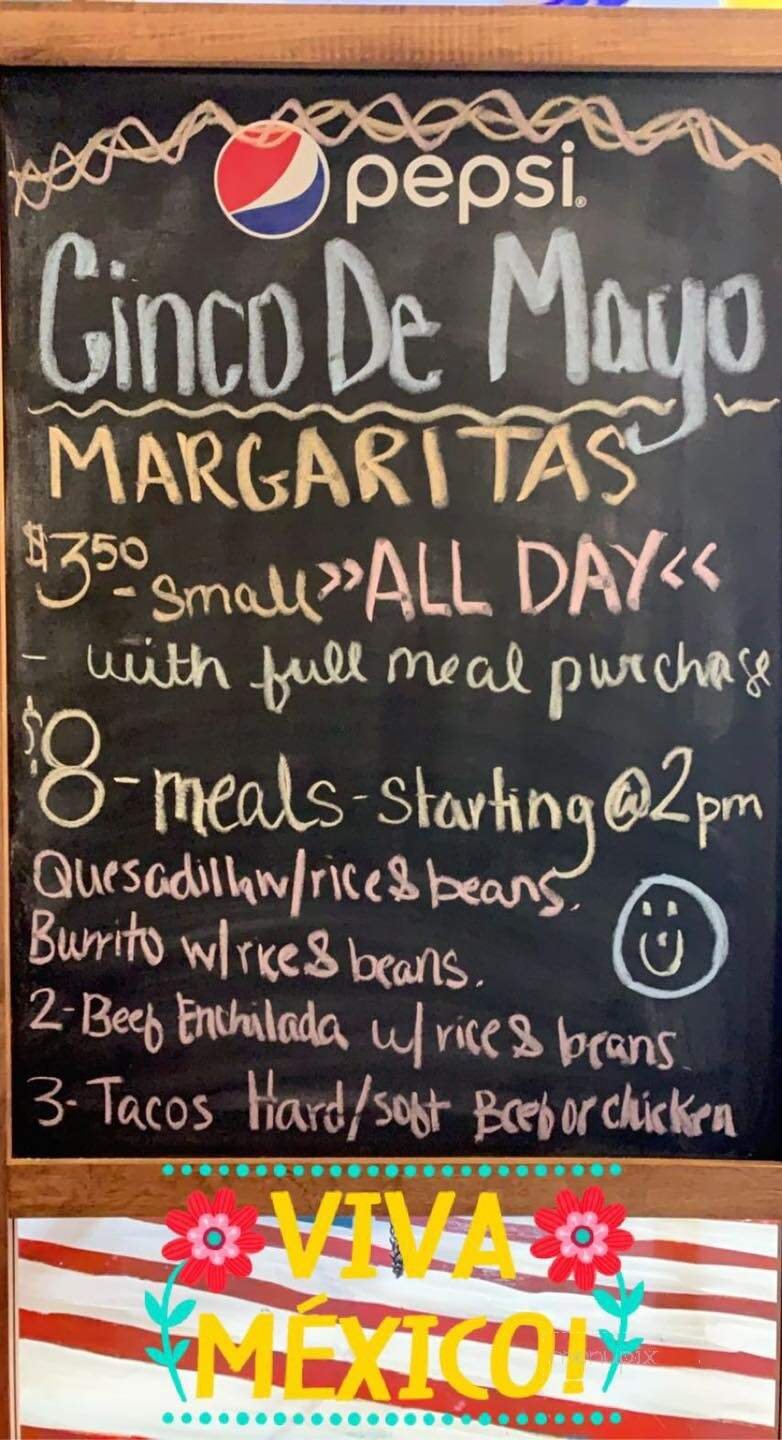 pepsi®
Cinco De Mayo
MARGARITAS
$3.50 - small »ALL DAY«
- with full meal purchase
$8 - meals - starting @ 2pm
Quesadilla w/rice & beans.
Burrito w/rice & beans.
2- Beef Enchilada w/ rice & beans
3- Tacos Hard/soft Beef or chicken
VIVA
MÉXICO!
menupix